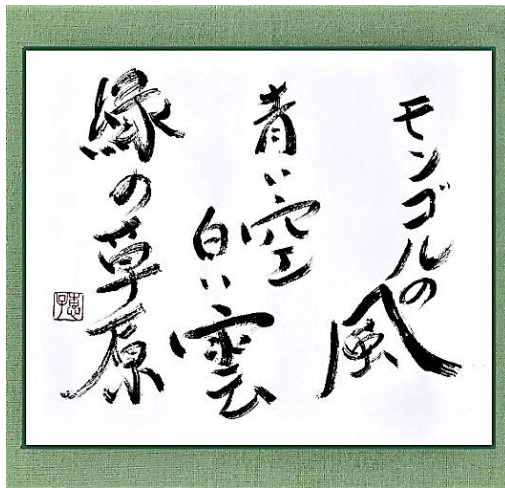 モンゴルの風
青い空
白い雲
緑の草原